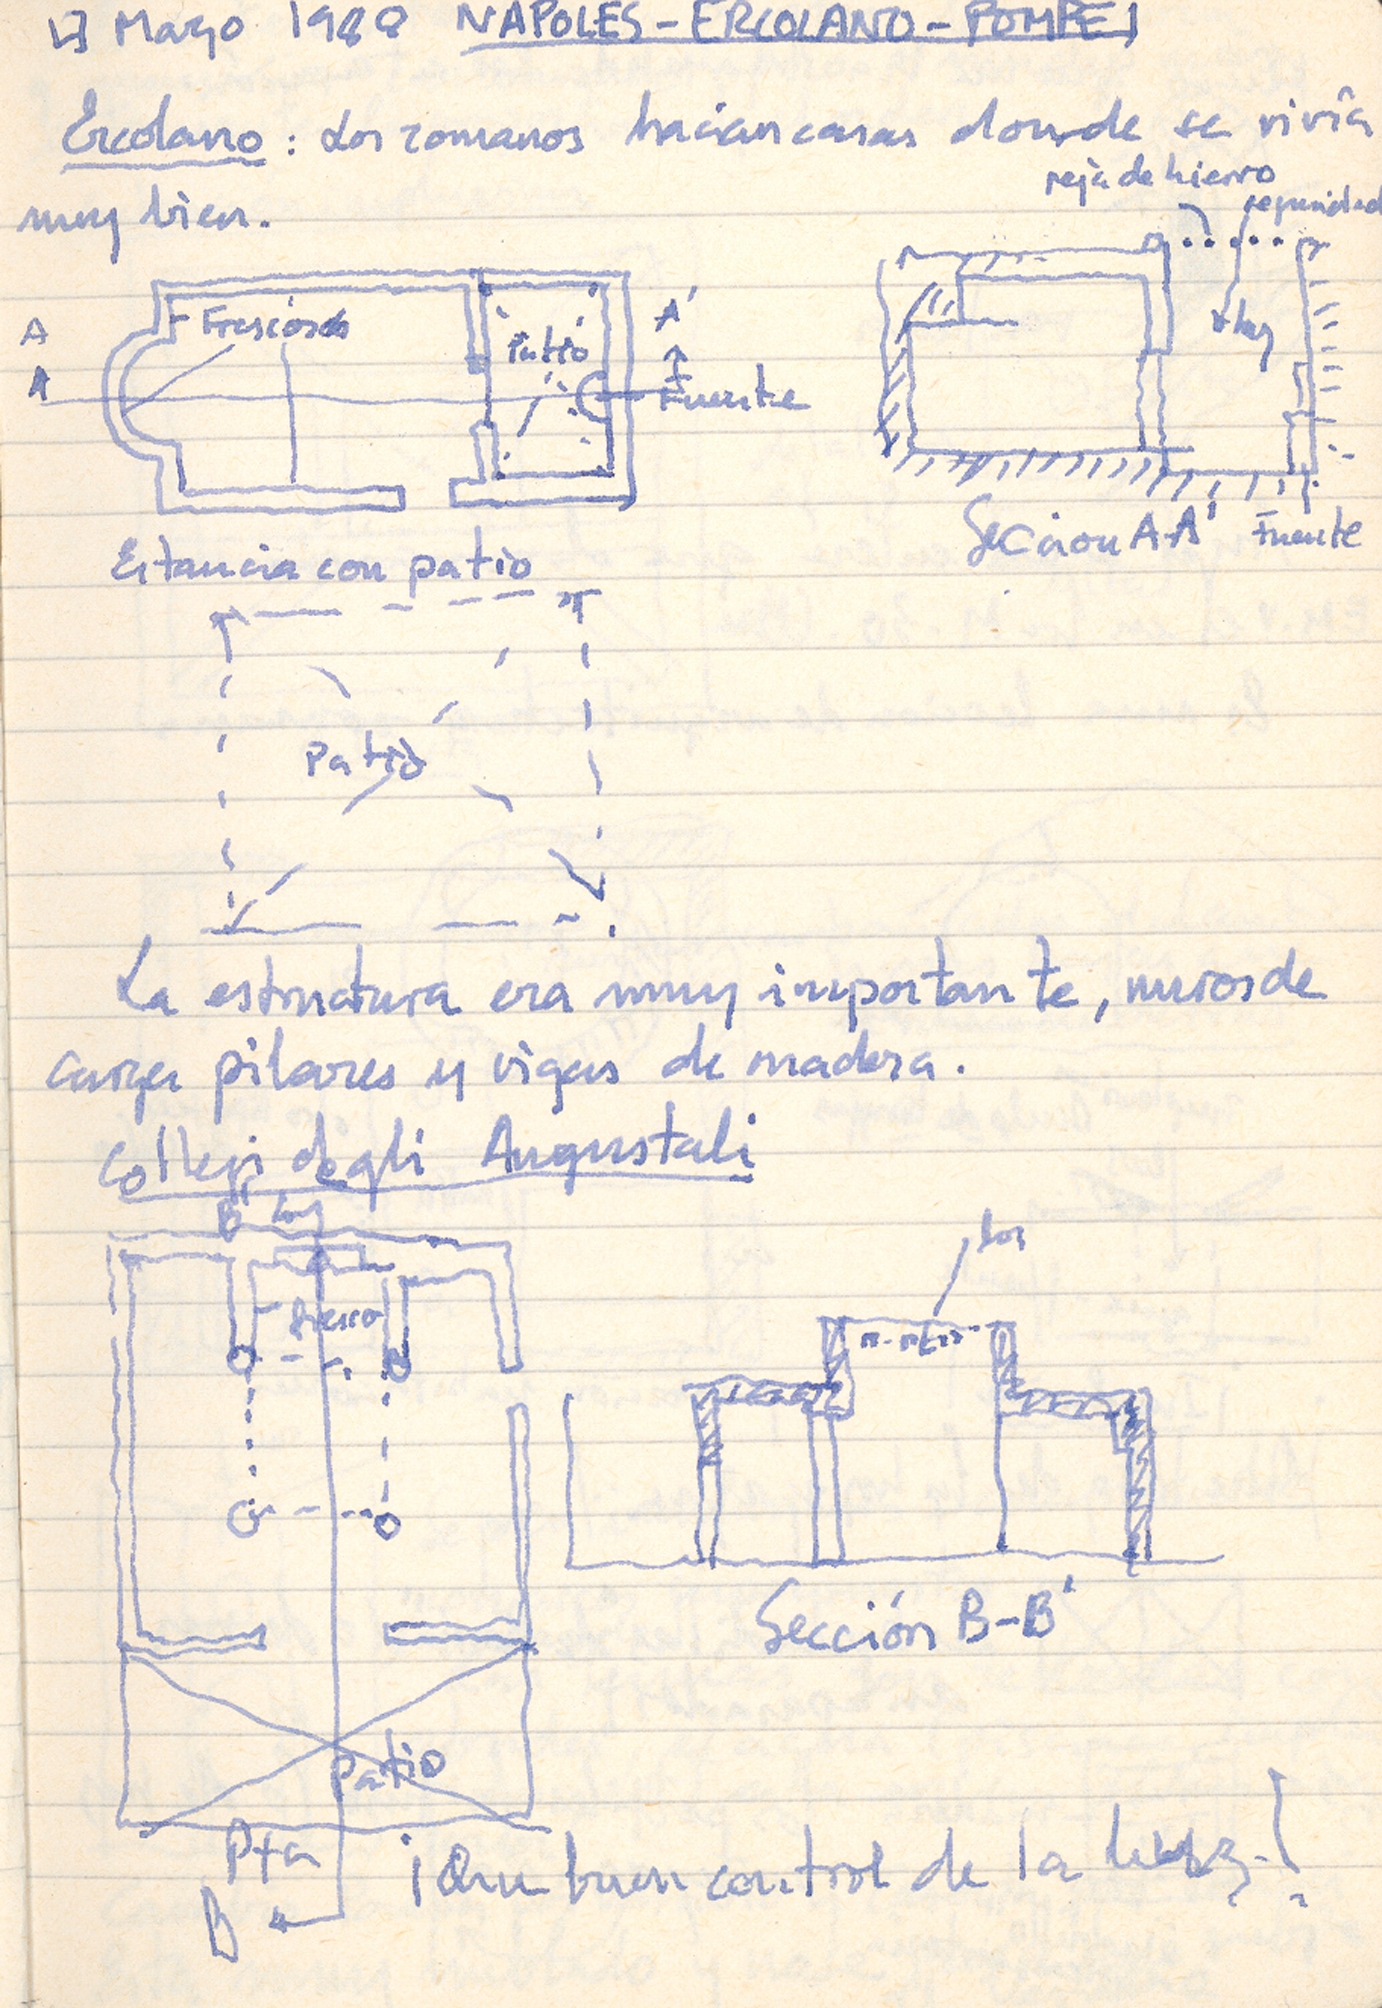 17 Marzo 1988 NAPOLES-ERCOLANO-POMPEI
Ercolano: Los romanos hacian casas donde se vivía
muy bien.
reja de hierro
seguridad
A
A
Frescos
Patio
A'
Fuente
Luz
Estancia con patio
Sección A-A' Fuente
Patio
La estructura era muy importante, muros de
carga pilares y vigas de madera.
Collegi degli Augustali
B' Luz
Fresco
Luz
Sección B-B'
Patio
Pta
B
¡Que buen control de la luz!